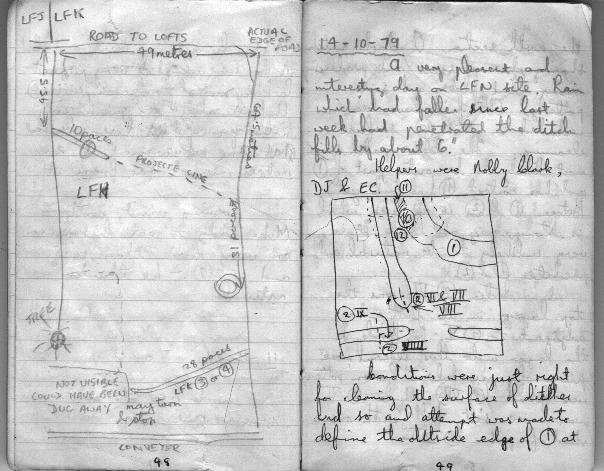 LFJ LFK
ROAD TO LOFTS
ACTUAL
EDGE OF
49 metres
10 paces
PROJECTE LINE
TREE
28 paces
LFK ③ or ④
NOT VISIBLE
COULD HAVE BEEN
DUG AWAY
may turn
& stop
CONVEYER
14-10-79
A very pleasent and
interesting day on LFN site. Rain
which had fallen since last
week had penetrated the ditch
fills by about 6."
Helpers were Molly
DJ & EC.
⑪
⑩
⑫
①
② VI & VII
VIII
② IX
②
Conditions were just right
for cleaning the surface of
and so and attempt was made to
define the edge of ① at
49